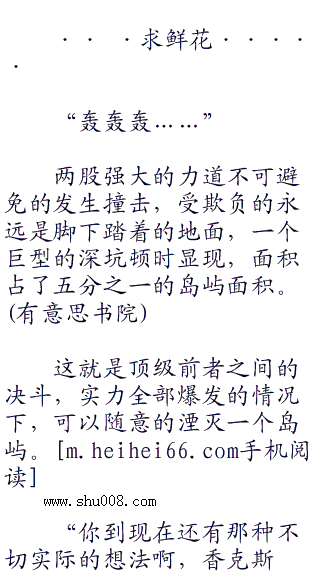 · · ·求鲜花· · · ·
·
“轰轰轰……”
两股强大的力道不可避
免的发生撞击，受欺负的永
远是脚下踏着的地面，一个
巨型的深坑顿时显现，面积
占了五分之一的岛屿面积。
(有意思书院)
这就是顶级前者之间的
决斗，实力全部爆发的情况
下，可以随意的湮灭一个岛
屿。[m.heihei66.com手机阅
读]
www.shu008.com
“你到现在还有那种不
切实际的想法啊，香克斯